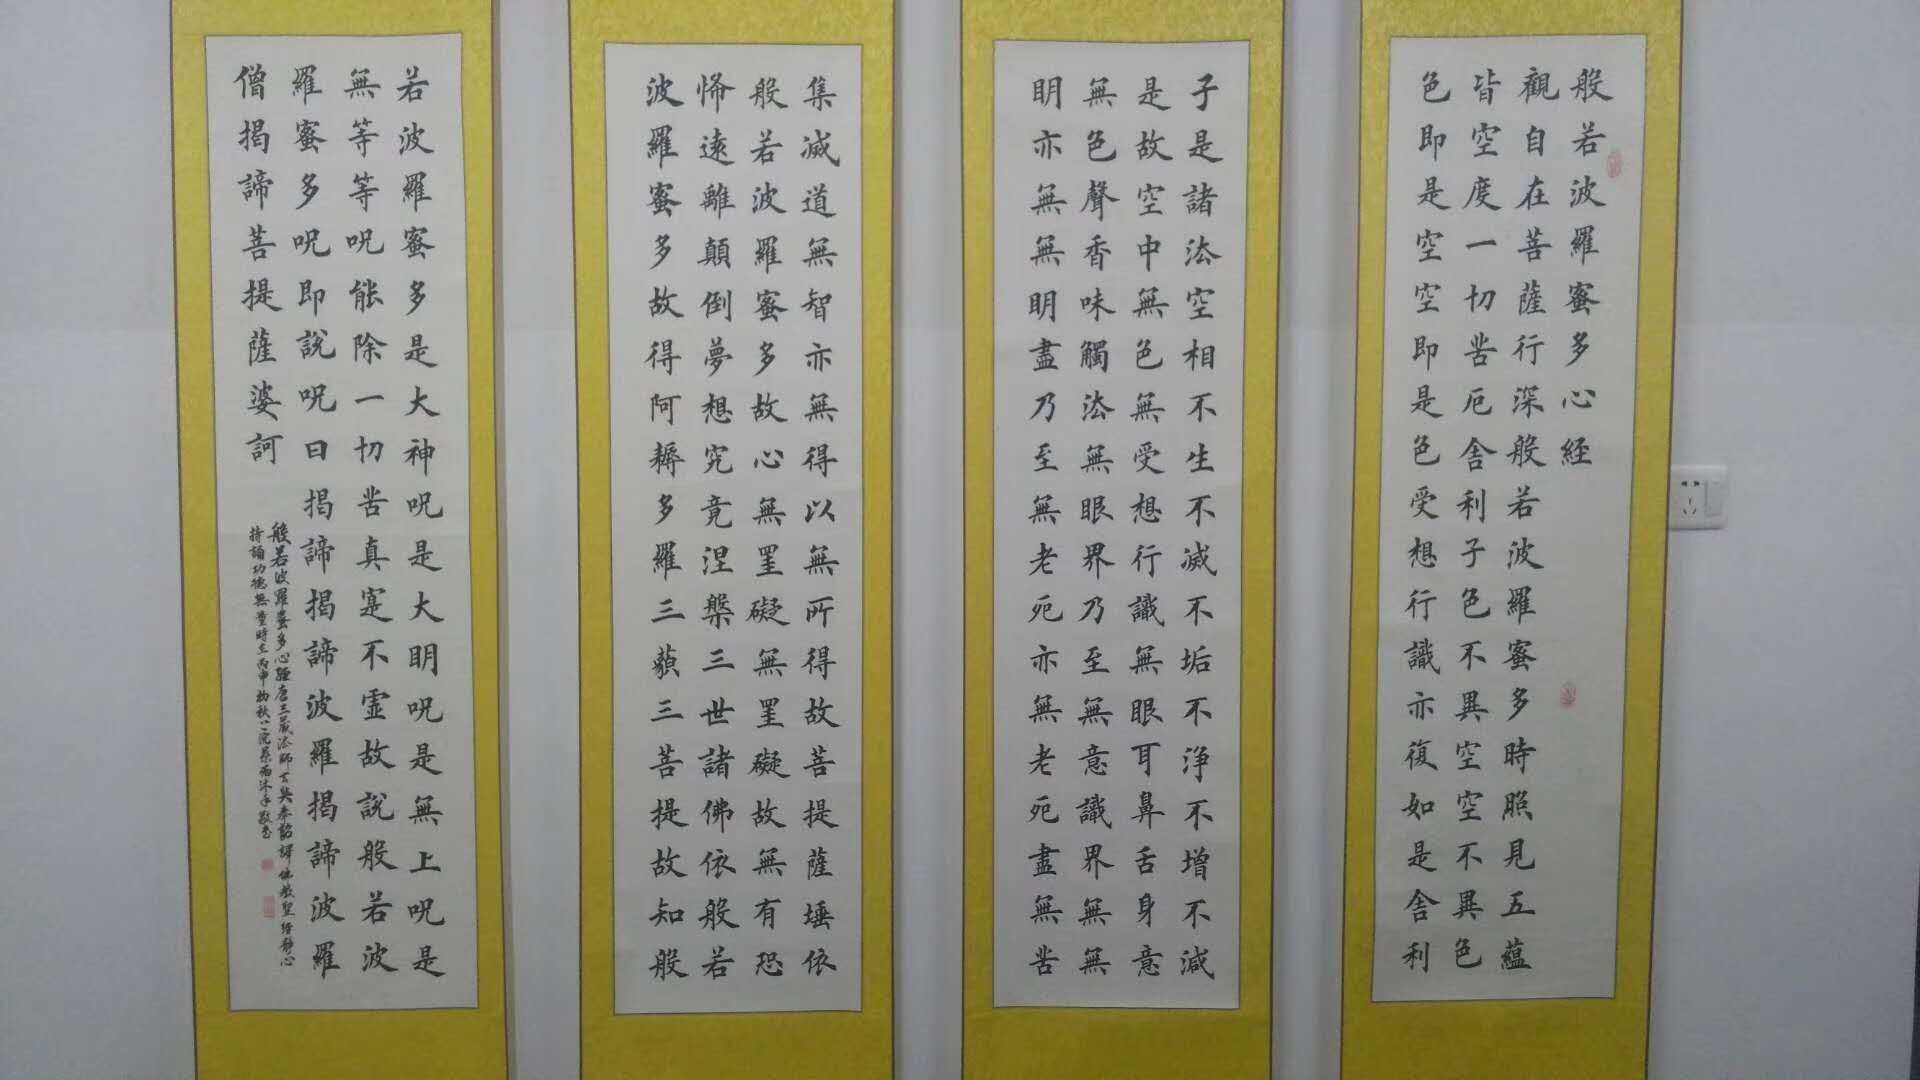 般若波羅蜜多心経
觀自在菩薩行深般若波羅蜜多時照見五蘊
皆空度一切苦厄舎利子色不異空空不異色
色即是空空即是色受想行識亦復如是舎利
子是諸法空相不生不滅不垢不浄不增不減
是故空中無色無受想行識無眼耳鼻舌身意
無色聲香味觸法無眼界乃至無意識界無無
明亦無無明盡乃至無老死亦無老死盡無苦
集滅道無智亦無得以無所得故菩提薩埵依
般若波羅蜜多故心無罣礙無罣礙故無有恐
怖遠離顛倒夢想究竟涅槃三世諸佛依般若
波羅蜜多故得阿耨多羅三藐三菩提故知般
若波羅蜜多是大神呪是大明呪是無上呪是
無等等呪能除一切苦真寔不虛故說般若波
羅蜜多呪即說呪曰揭諦揭諦波羅揭諦波羅
僧揭諦菩提薩婆訶
般若波羅蜜多心經唐三藏法師玄奘奉詔譯佛教聖經靜心
持誦功德無量時在丙申初秋